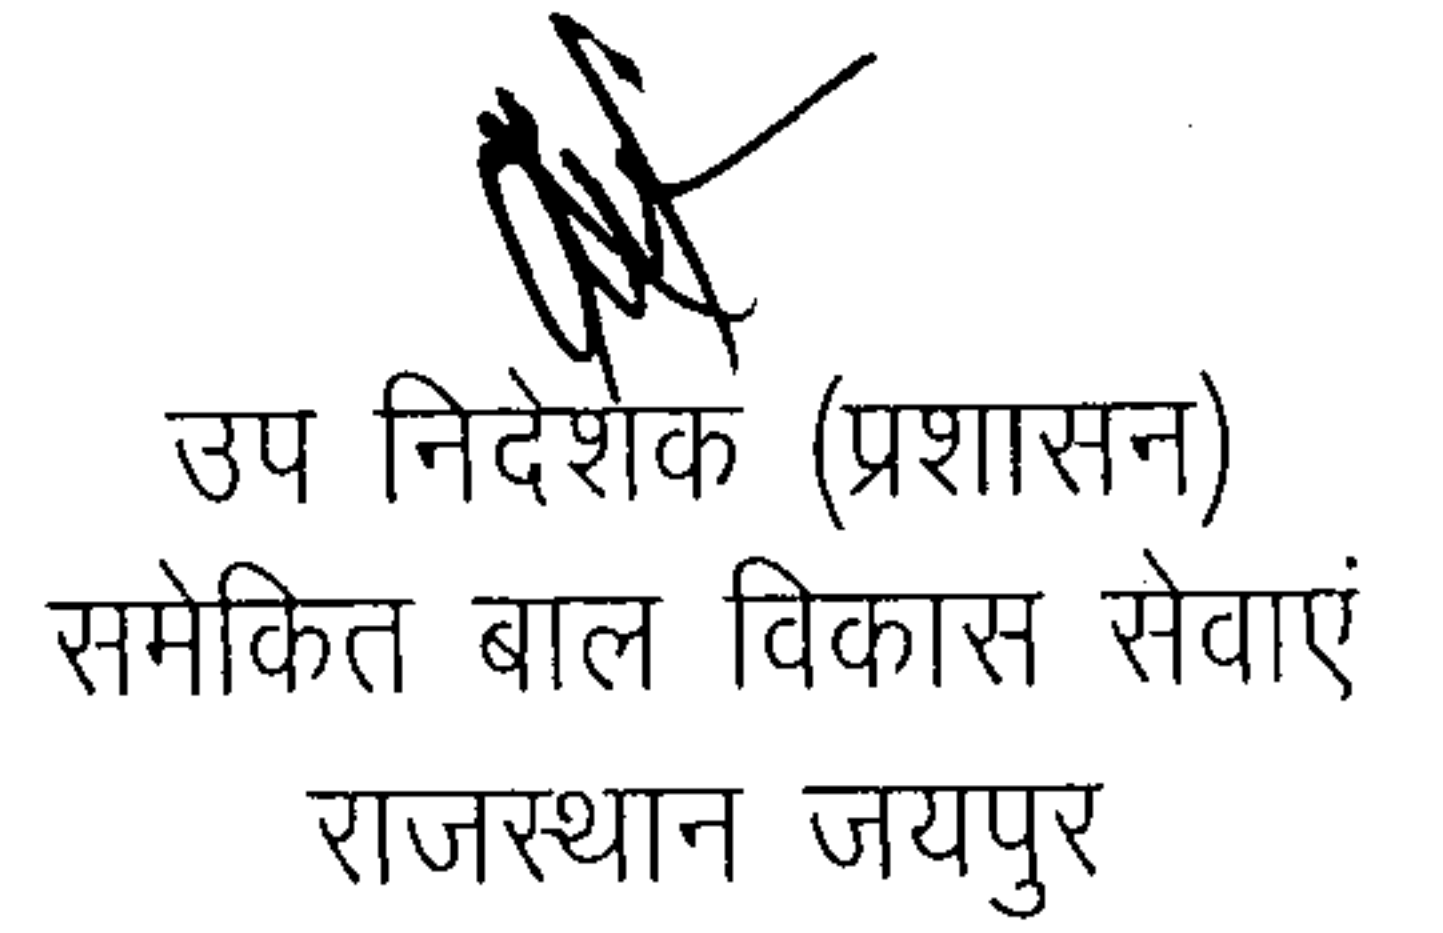 उप निदेशक (प्रशासन)
समेकित बाल विकास सेवाएं
राजस्थान जयपुर